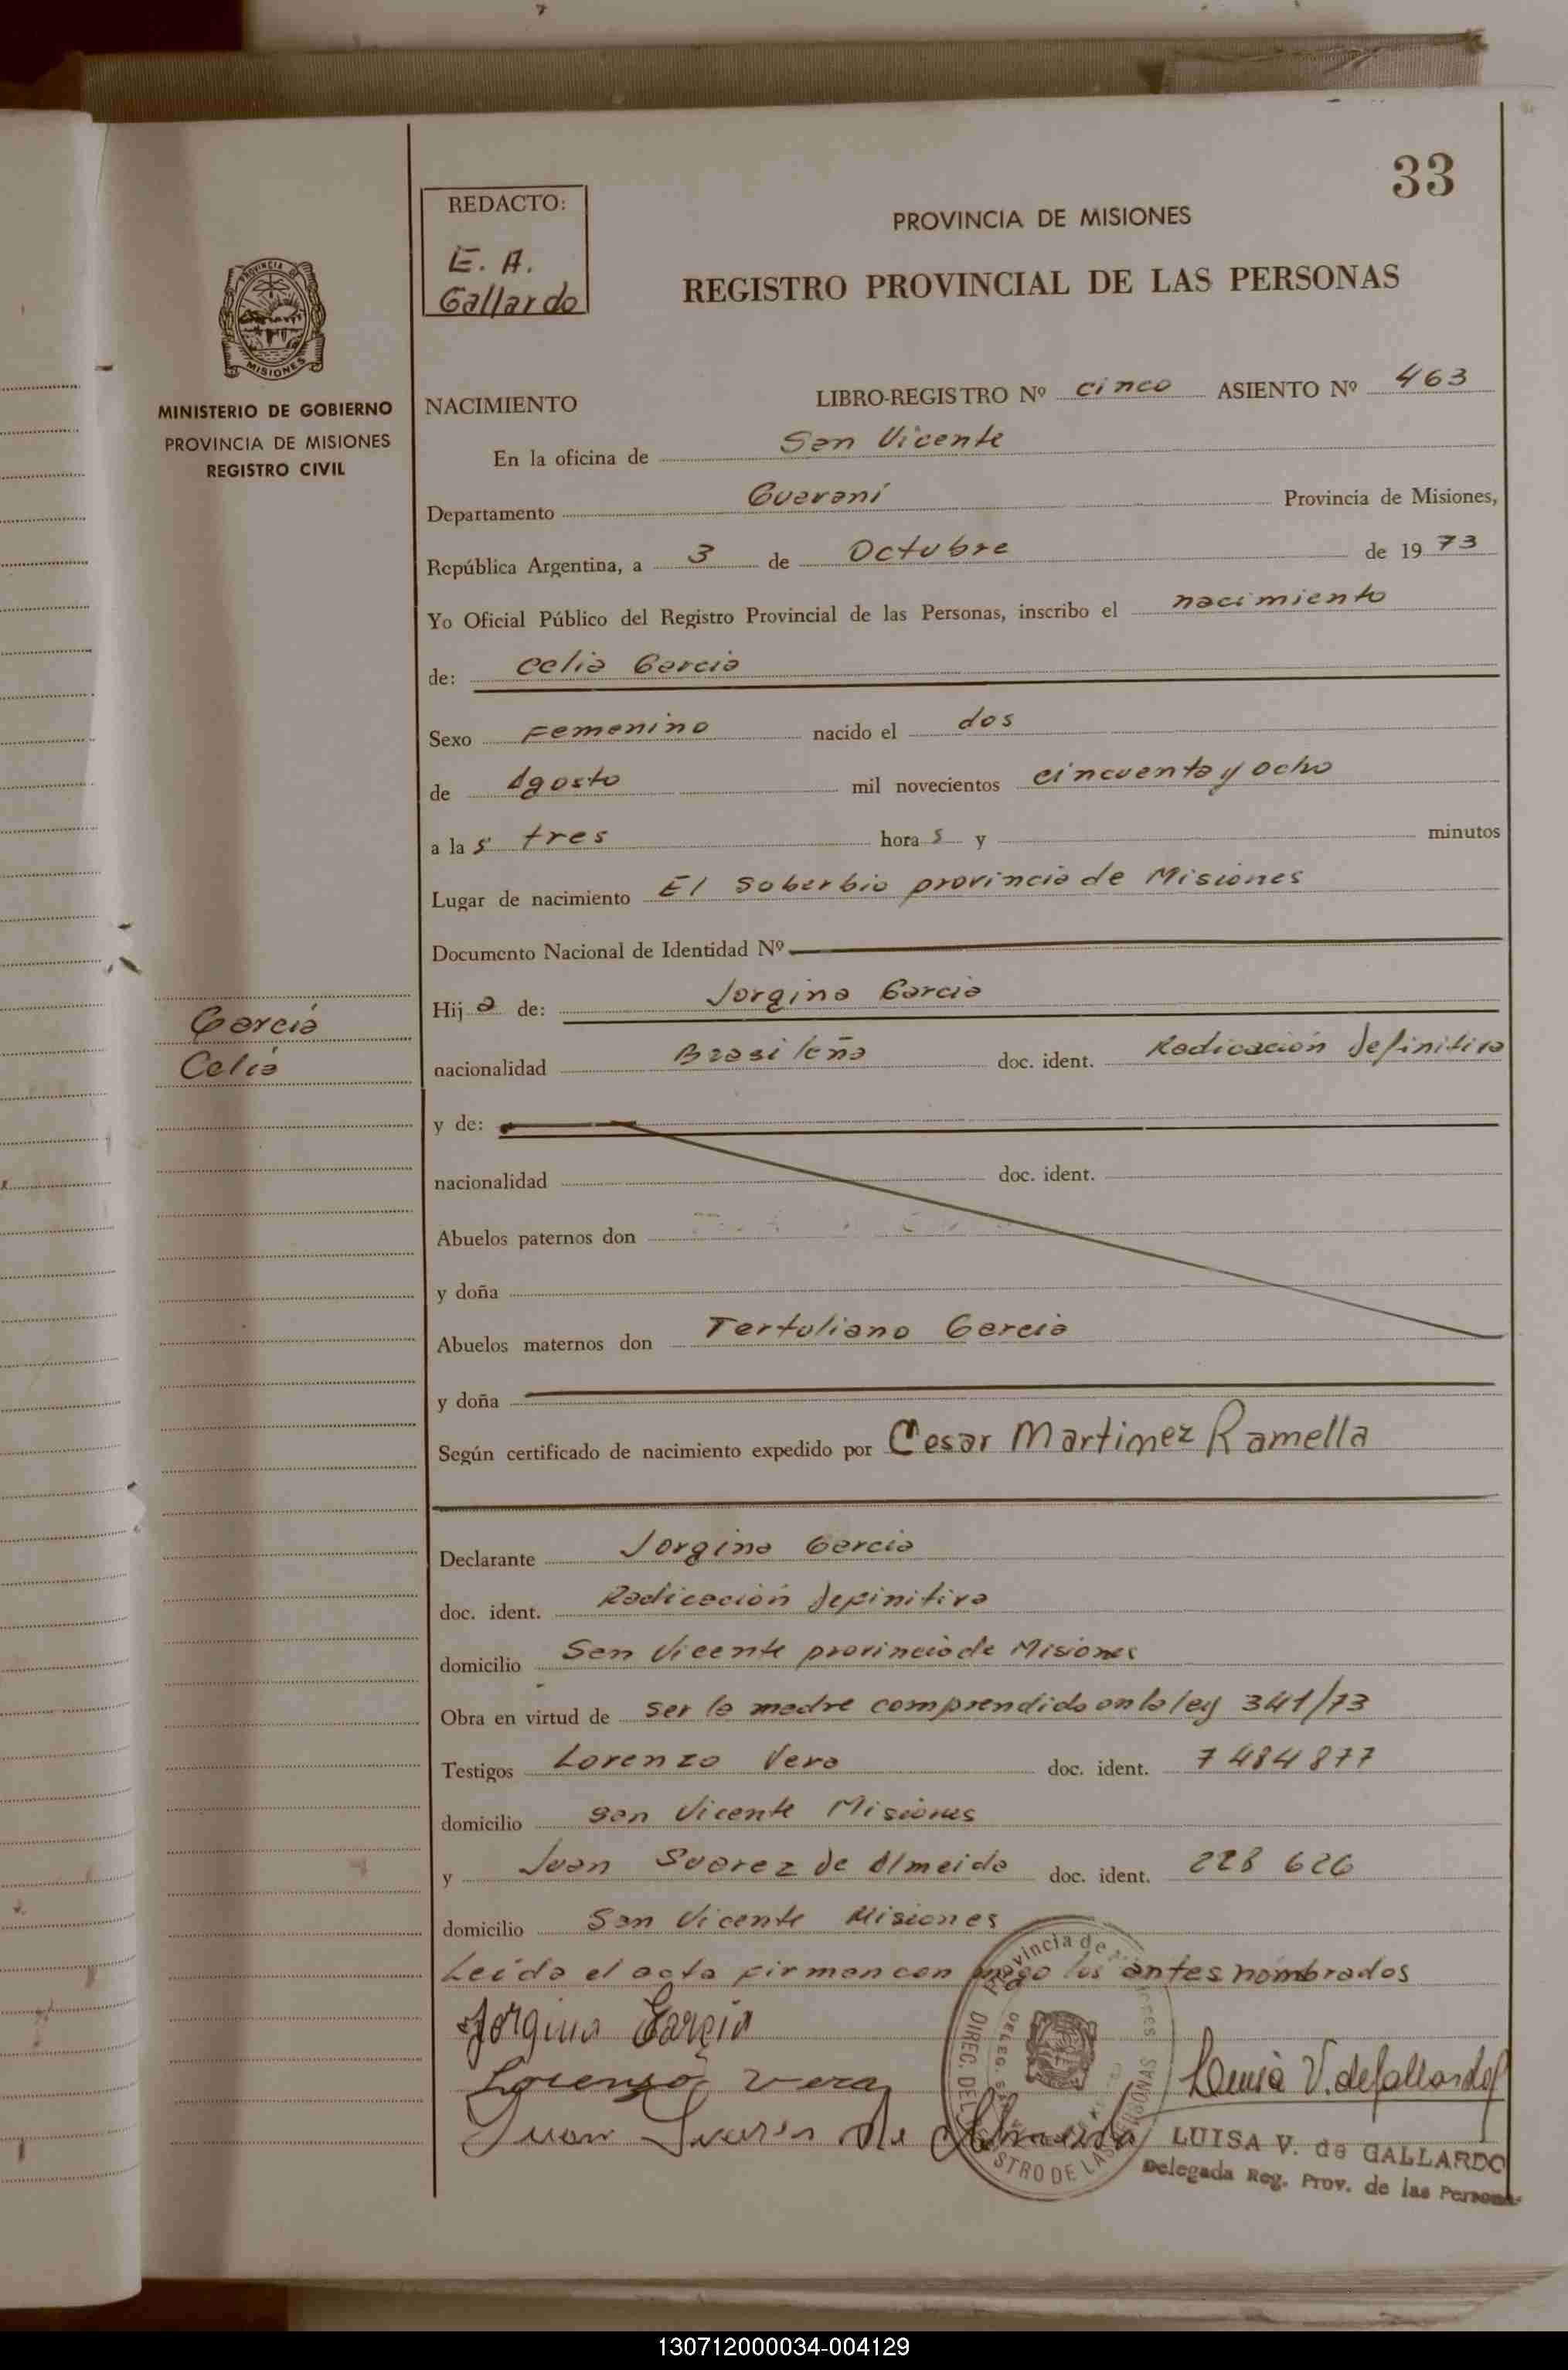 33
REDACTO:
E. A.
Gallardo
PROVINCIA DE MISIONES
REGISTRO PROVINCIAL DE LAS PERSONAS
PROVINCIA DE MISIONES
MINISTERIO DE GOBIERNO
PROVINCIA DE MISIONES
REGISTRO CIVIL
NACIMIENTO LIBRO-REGISTRO Nº cinco ASIENTO Nº 463
En la oficina de San Vicente
Departamento Guaraní Provincia de Misiones,
República Argentina, a 3 de Octubre de 19 73
Yo Oficial Público del Registro Provincial de las Personas, inscribo el nacimiento
de: Celia Garcia
Sexo Femenino nacido el dos
de Agosto mil novecientos cincuenta y ocho
a la s tres hora s y minutos
Lugar de nacimiento El Soberbio provincia de Misiones
Documento Nacional de Identidad Nº
Hij a de: Jorgina Garcia
Garcia
Celia
nacionalidad Brasileña doc. ident. Radicación definitiva
y de:
nacionalidad doc. ident.
Abuelos paternos don
y doña
Abuelos maternos don Tertuliano Garcia
y doña
Según certificado de nacimiento expedido por Cesar Martinez Ramella
Declarante Jorgina Garcia
doc. ident. Radicación definitiva
domicilio San Vicente provincia de Misiones
Obra en virtud de ser la madre comprendido en la ley 341/73
Testigos Lorenzo Vera doc. ident. 7484877
domicilio San Vicente Misiones
y Juan Suarez de Almeida doc. ident. 228 626
domicilio San Vicente Misiones
Leida el acta firman con migo los antes nombrados
Jorgina Garcia
Lorenzo Vera
Juan Suares de Almeida
Luisa V. de Gallardo
LUISA V. de GALLARDO
Delegada Reg. Prov. de las Personas
130712000034-004129